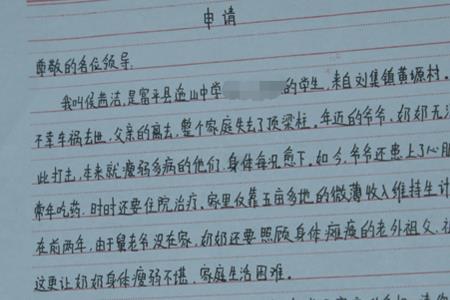 申请
尊敬的各位领导:
我叫侯茜洁,是富平县迤山中学 的学生,来自刘集镇黄塬村.
不幸车祸去世,父亲的离去,整个家庭失去了顶梁柱.年近的爷爷、奶奶无法
此打击,本来就瘦弱多病的他们,身体每况愈下。如今,爷爷还患上了心脏
常年吃药,时时还要住院治疗。家里仅靠五亩多地的微薄收入维持生计
在前两年,由于舅老爷没在家,奶奶还要照顾身体瘫痪的老外祖父、
这更让奶奶身体瘦弱不堪,家庭生活困难。